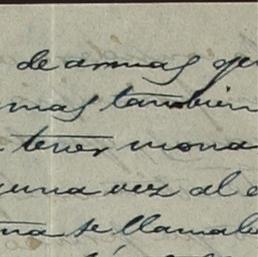 de armas que
mas tambien
tener mona
guna vez al e
na se llamab